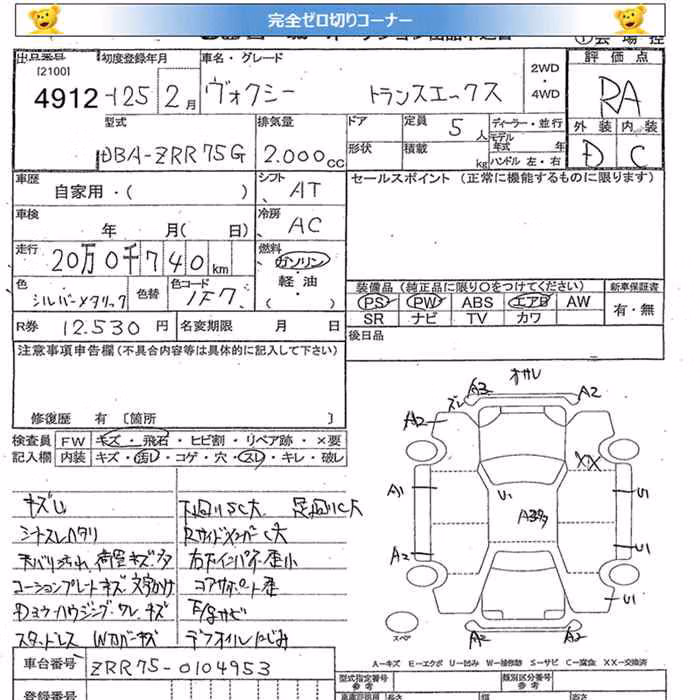 完全ゼロ切りコーナー
出品番号 初度登録年月 車名・グレード 2WD・4WD 評価点
[2100]
4912 25 2月 ヴォクシー トランスエックス RA
型式 排気量 ドア 定員 5人 ディーラー・並行 外装 内装
DBA-ZRR75G 2.000cc 形状 積載 kg モデル年式 年 ハンドル 左・右 D C
車歴 シフト AT セールスポイント (正常に機能するものに限ります)
自家用・( )
車検 年 月( 日) 冷房 AC
走行 20万0千740km 燃料 ガソリン
軽油
( )
色 シルバーメタリック 色替 色コード 1F7
装備品 (純正品に限り○をつけてください) 新車保証書
PS PW ABS エアB AW 有・無
SR ナビ TV カワ
R券 12.530円 名変期限 月 日 後日品
注意事項申告欄(不具合内容等は具体的に記入して下さい)
修復歴 有 [箇所 ]
検査員 FW キズ・飛石・ヒビ割・リペア跡・×要
記入欄 内装 キズ・汚レ・コゲ・穴・スレ・キレ・破レ
オサレ
A3 A2
ズレ
A2
XX
A1 U1 A3多 U1
A2 U1
U1
スペア
A2 A2
下廻りSC大 足廻りC大
シートスレハタリ RサイドメンバーC大
天バリ汚れ、荷室キズ多 右下インパネ歪小
コーションプレートキズ文字かけ コアサポート歪
Dミラーハウジングワレ、キズ E/gサビ
スタッドレス Wカバーキズ デフオイルにじみ
A-キズ E-エクボ U-凹み W-補修跡 S-サビ C-腐食 XX-交換済
車台番号 ZRR75-0104953
型式指定番号 参考 類別区分番号 参考
登録番号 長さ 幅 高さ